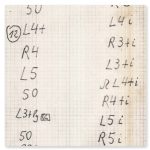 50
12 L4+
R4
L5
50
L3+
50
L4i
R3+i
L3+i
L4+i
R4+i
L5i
R5i